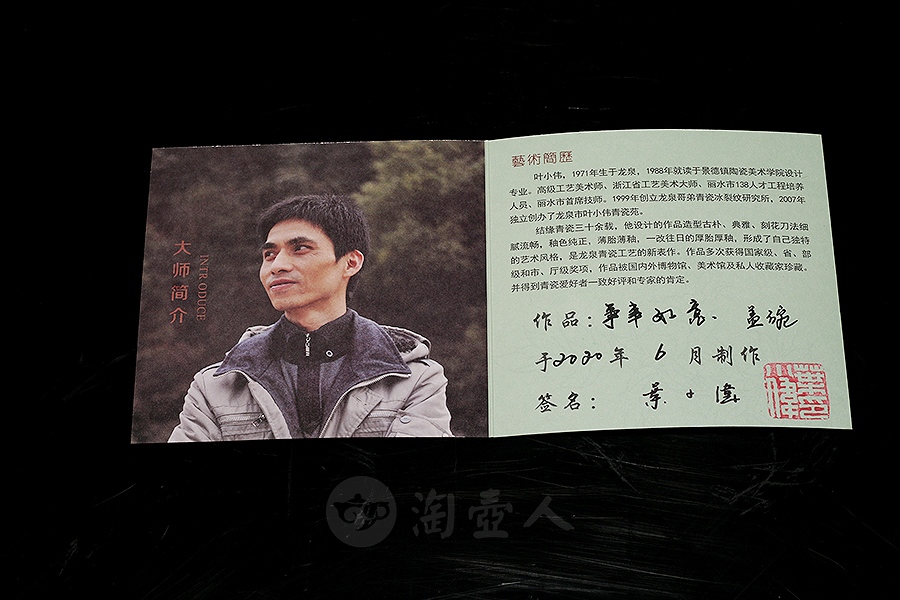 大师简介
INTRODUCE
藝術简歷
叶小伟，1971年生于龙泉，1988年就读于景德镇陶瓷美术学院设计
专业。高级工艺美术师、浙江省工艺美术大师、丽水市138人才工程培养
人员、丽水市首席技师。1999年创立龙泉哥弟青瓷冰裂纹研究所，2007年
独立创办了龙泉市叶小伟青瓷苑。
结缘青瓷三十余载，他设计的作品造型古朴、典雅、刻花刀法细
腻流畅，釉色纯正、薄胎薄釉，一改往日的厚胎厚釉，形成了自己独特
的艺术风格，是龙泉青瓷工艺的新表作。作品多次获得国家级、省、部
级和市、厅级奖项，作品被国内外博物馆、美术馆及私人收藏家珍藏。
并得到青瓷爱好者一致好评和专家的肯定。
作品：事事如意 盖碗
于2020年 6 月制作
签名： 葉小偉
淘壶人